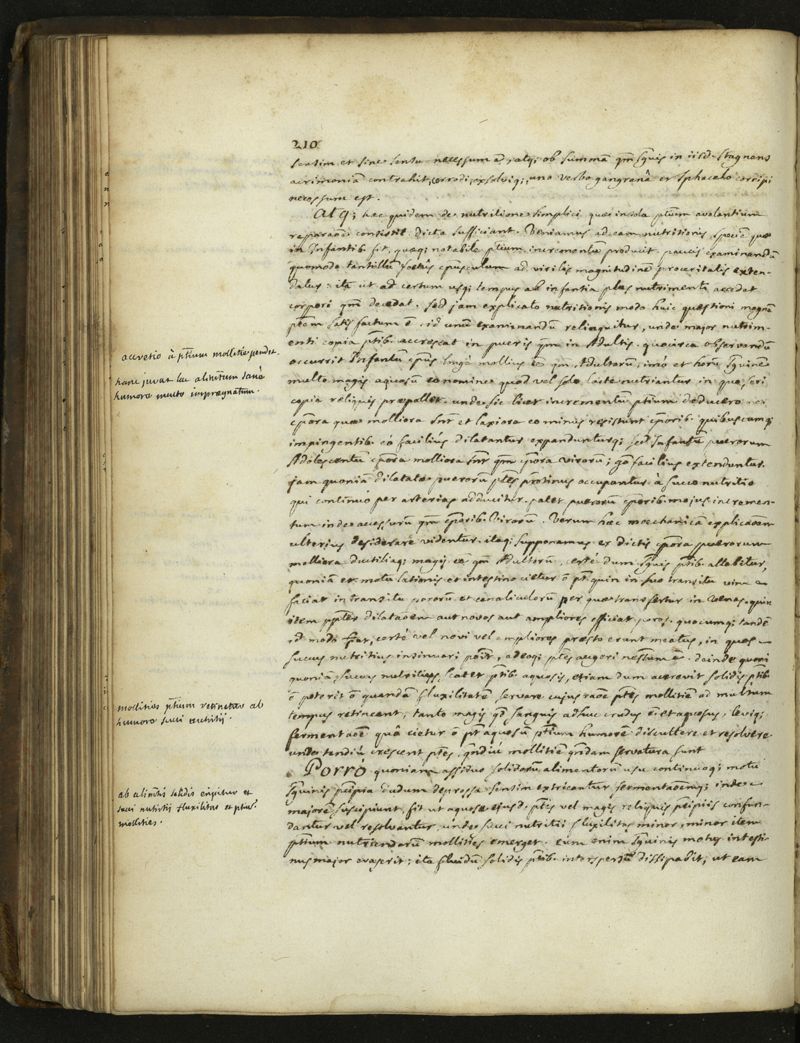 210
sensim et sine sensu necessum ē, atq; ob summā qm̄ sguis in iisd. stagnans
acrimoniā contrahit, corrodi, exsolviq;, uno verbo gangrenā et sphacelo corripi
necessum est.
At q; hæc quidem de nutritione simplici quæ in sola ptium avolantium
reparaōe consistit dicta sufficiant. Veniamus ad eam nutritionis speciē quæ
in Infantib. fit, quæq; notabile ptium incrementū producit paucis examinandū
quomodo tantillū fœtus cpusculum ad virilis magnitudinē proceritatis exten-
datur: itā ut ad certum usq; tempus ab infantia plus nutrimenti accedat
corpori qm̄ decedat. sed jam explicato nutritionis modo huic quæstioni magnā
ptem satisfactum ē. id unū examinandū relinquitur, unde major nutrim-
enti copia ptib. accrescat in pueris qm̄ in Adultis. quocirca observandū
occurrit Infantū cpus longè mollius ēē qm̄ Adultorū, imò et horū sguinē
multo magis aquosū eo nomine quod vel solo lacte nutriantur in quo seri
copia reliquis præpollet. unde sic licet incrementū ptium deducere
cpora quæ molliora snt et laxiora eo minus resistunt cporib. quibuscumq;
impingentib. eò faciliùs dilatantur expandunturq; sed Infantū puerorum
Adolescentū cpora molliora snt qm̄ cpora virorū; go facilius extenduntur.
jam quoniā dilatatæ puerorū ptes protinus occupantur à succo nutritio
qui continuò per arterias adducitur. patet puerorū cporib. majus incremen-
tum inde accessurū qm̄ cporib. Virorū. Verum hæc mechanicā explicaōem
ulterius desiderare videntur. itaq; supponamus ex dictis cpora puerorum
molliora ductiliaq; magis ēē qm̄ Adultorū, certè dum sguis ptib. allabitur,
quoniā et motu lationis et intestino cietur ō pt quin in suo transitu vim
faciat in transitu pororū et canaliculorū per quæ transfertur in venas, quin
item ppter dilataōem aut novos aut ampliores efficiat poros. quocumq; tandē
id modo fiat, certè vel novi vel ampliores præsto erunt meatus, in quos
succus nutritius insinuari poit, adeoq; ptes augeri nessum ē. deinde quoni
quoniā succus nutritius scatet ptib. aquosis, etiam dum accrevit solidis ptib.
ō poterit ō quandā fluxilitatē servare cujus raōe ptes mollitiē ad multum
tempus retineant, tanto magis qd sanguis adhuc crudus ē et aquosus, leviq;
fermentaōē quā cietur ō pt aquosū ptium humorē discutere et resolvere
undo tendiu crescent ptes, qmdiu mollitiē qmdam servatura sunt
Porrò quoniam assiduo solidorū alimentorū usu continuoq; motu
sguinis pcipia dudum depressa sensim extricantur fermentaōemq; inde
majorē suscipiunt, fit ut aquosæ ejusd. ptes vel magis reliquis pcipiis confun-
dantur vel resolvantur, unde succi nutritii fluxilitas minor, minor item
ptium nutriendarū mollities emerget. cum enim sguinis motus intesti-
nus major evaserit; ita fluidū solidis ptib. interspersū dissipabit, ut eam
accretio à ptium mollitie pendet.
hanc juvat lac alimtum sanè
humore multo impregnatum.
mollities ptium retinetur ab
humore succi nutritii.
ab alimtis solidis eripitur et
succi nutritii fluxilitas et ptium
mollities.